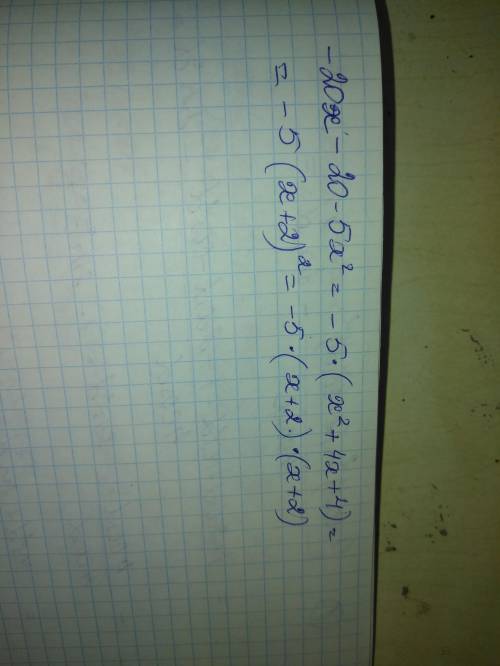 -20x - 20 - 5x² = -5·(x²+4x+4) =
= -5(x+2)² = -5·(x+2)·(x+2)